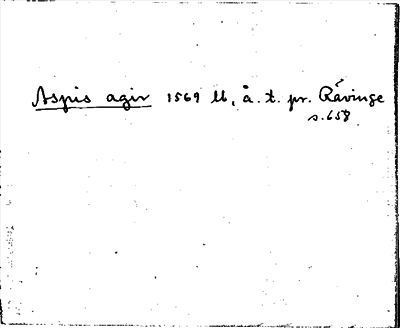 Aspis agir 1569 ll, å. t. pr. Rävinge
s. 658